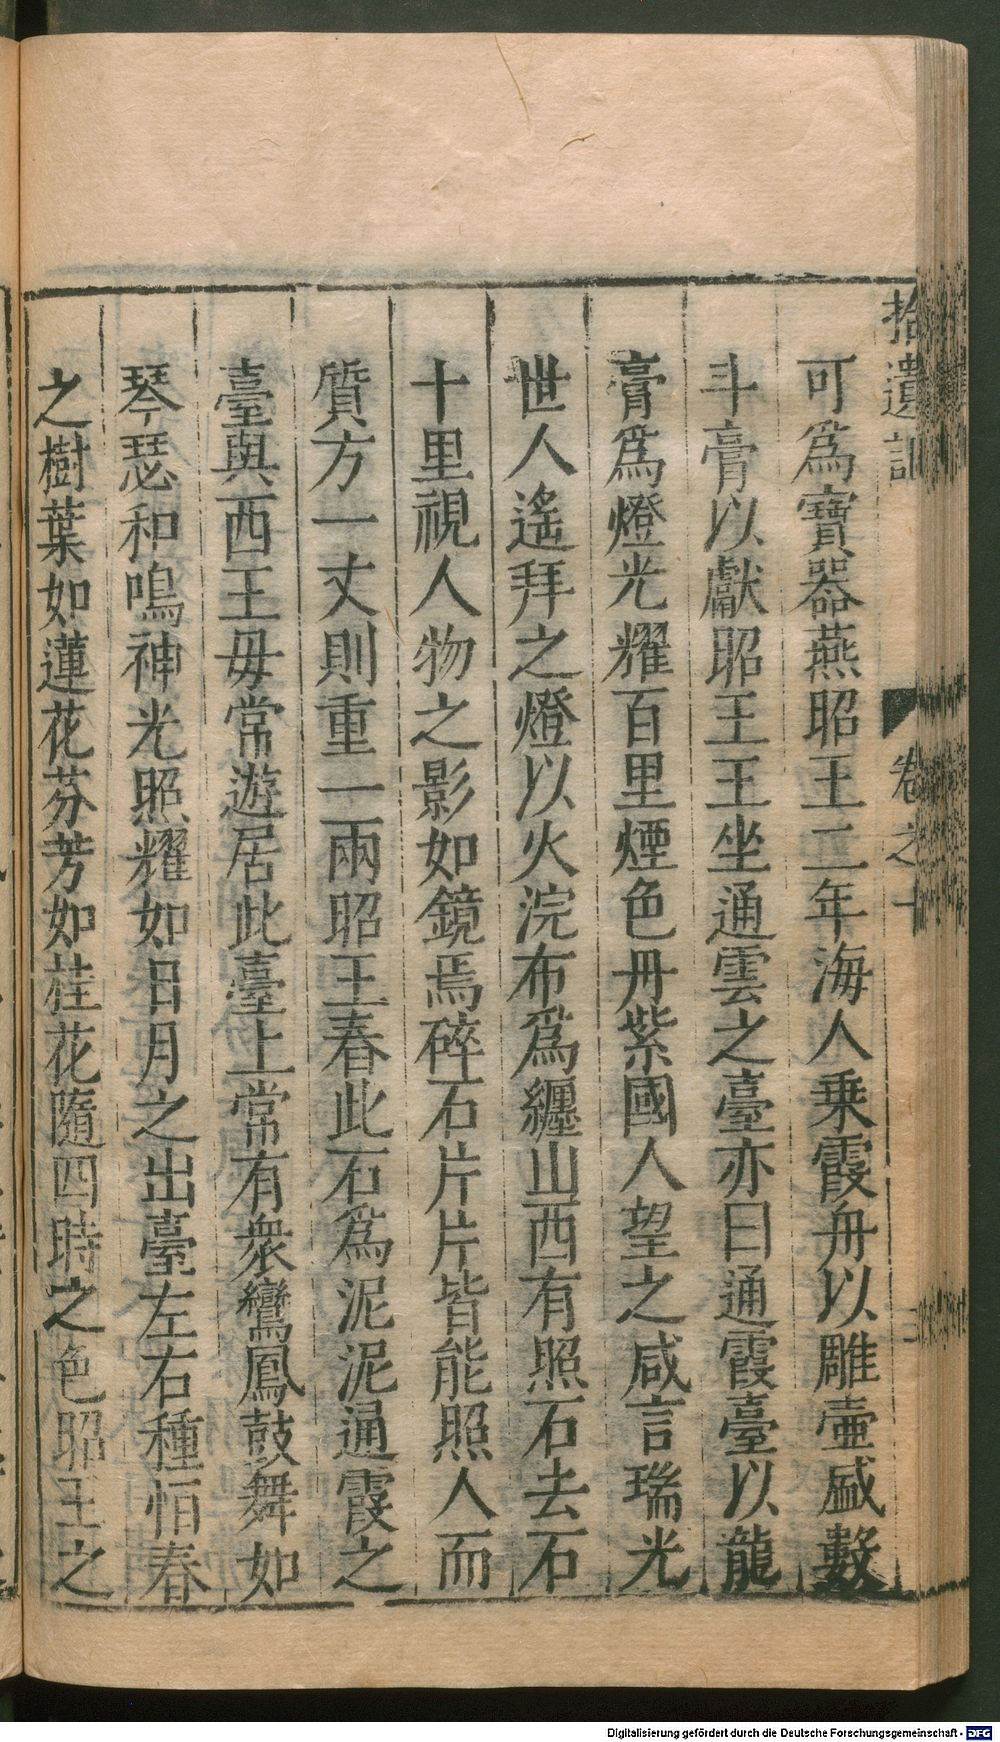 拾遺記 卷之十 二
可爲寶器燕昭王二年海人乗霞舟以雕壷盛數
斗膏以獻昭王王坐通雲之臺亦曰通霞臺以龍
膏爲燈光耀百里煙色丹紫國人望之咸言瑞光
世人遙拜之燈以火浣布爲纏山西有照石去石
十里視人物之影如鏡焉碎石片片皆能照人而
質方一丈則重一兩昭王舂此石爲泥泥通霞之
臺與西王毋常遊居此臺上常有衆鸞鳳鼓舞如
琴瑟和鳴神光照耀如日月之出臺左右種恒春
之樹葉如蓮花芬芳如桂花隨四時之色昭王之
Digitalisierung gefördert durch die Deutsche Forschungsgemeinschaft - DFG